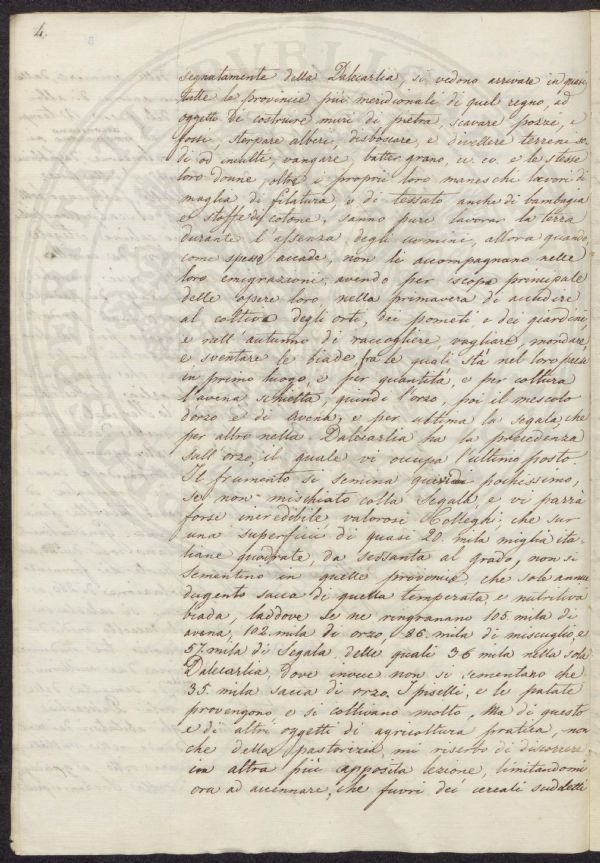 4.
segnatamente della Dalecarlia, si vedono arrivare in quasi
tutte le provincie più meridionali di quel regno, ad
oggetto di costruire muri di pietra, scavare pozzi, e
fossi, sterpare alberi, disboscare, e divellere terreni so-
di od inculti, vangare, batter grano, ec. ec. e le stesse
loro donne oltre i proprii loro maneschi lavori di
maglia, di filatura, e di tessuto anche di bambagia
e stoffe di cotone, sanno pure lavorar la terra
durante l'assenza degli uomini, allora quando,
come spesso accade, non li accompagnano nelle
loro emigrazioni, avendo per iscopo principale
delle opere loro, nella primavera di accudire
al coltivo degli orti, dei pometi e dei giardini,
e nell'autunno di raccogliere, vagliare, mondare,
e sventare le biade, fra le quali stà nel loro paese
in primo luogo, e per quantità, e per coltura
l'avena schietta, quindi l'orzo, poi il mescolo
d'orzo e di avena, e per ultima la segala, che
per altro nella Dalecarlia ha la precedenza
sull'orzo, il quale vi occupa l'ultimo posto.
Il frumento si semina quivi pochissimo,
se non mischiato colla Segala, e vi parrà
forse incredibile, valorosi Colleghi, che sur
una superficie di quasi 20 mila miglia ita-
liane quadrate, da sessanta al grado, non si
sementino in quelle provincie che sole annue
dugento sacca di quella temperata, e nutritiva
biada, laddove se ne ringranano 105 mila di
avena, 102 mila di orzo, 86 mila di miscuglio, e
57 mila di Segala, delle quali 36 mila nella sola
Dalecarlia, dove invece non si sementano che
35 mila sacca di orzo. I piselli, e le patate
provengono e si coltivano molto. Ma di questo
e di altri oggetti di agricoltura pratica, non
che della pastorizia mi riservo di discorrere
in altra più apposita lezione, limitandomi
ora ad accennare, che fuori dei cereali suddetti